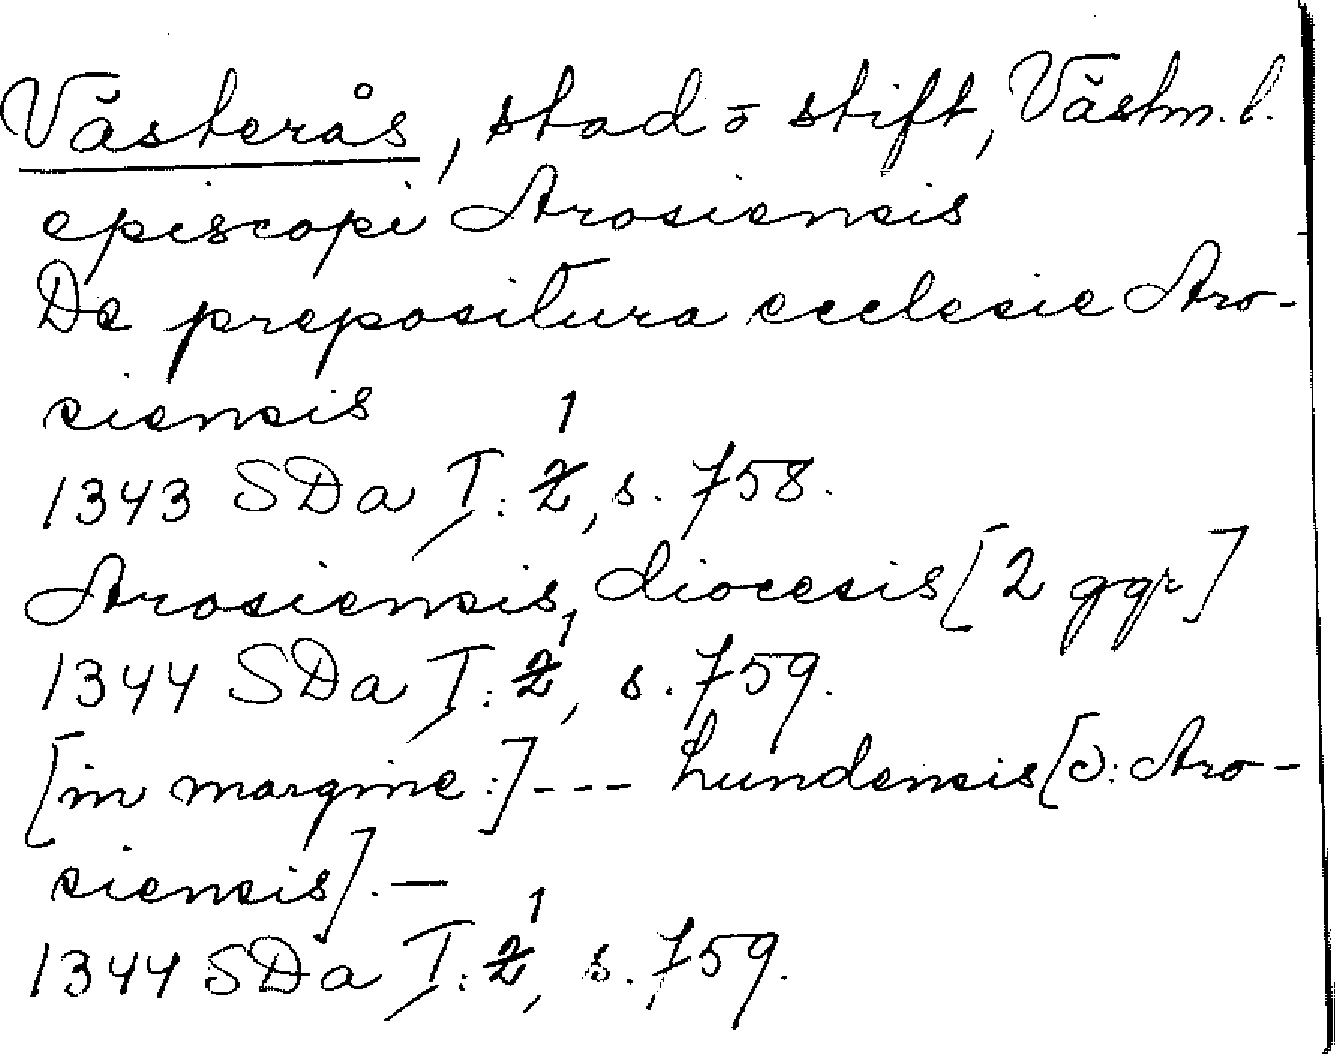 Västerås, stad o stift, Västm. l.
episcopi Arosiensis
De prepositura ecclesie Aro-
siensis
1343 SDa I: 1, s. 758.
Arosiensis, diocesis [2 ggr]
1344 SDa I: 1, s. 759.
[in margine:] --- Lundensis [ɔ: Aro-
siensis]. —
1344 SDa I: 1, s. 759.